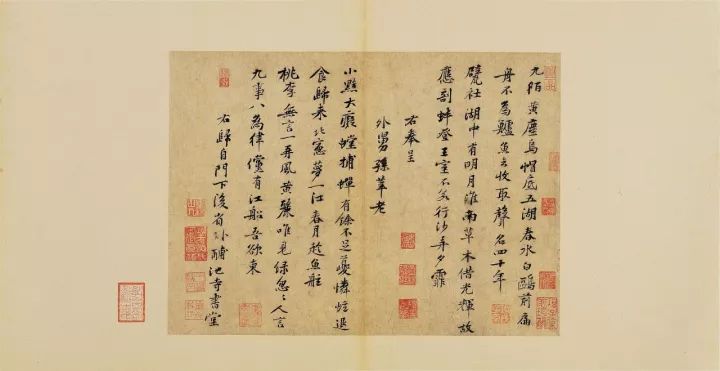 九陌黃塵烏帽底五湖春水白鷗前扁
舟不為鱸魚去收取聲名四十年
甓社湖中有明月淮南草木借光輝故
應剖蚌登王室不若行沙弄夕霏
右奉呈
外舅孫莘老
小黠大癡螳捕蟬有餘不足夔憐蚿退
食歸來北窻夢一江春月趂魚船
桃李無言一再風黃鸝唯見綠怱〻人言
九事八為律儻有江船吾欲東
右歸自門下後省卧酺池寺書堂